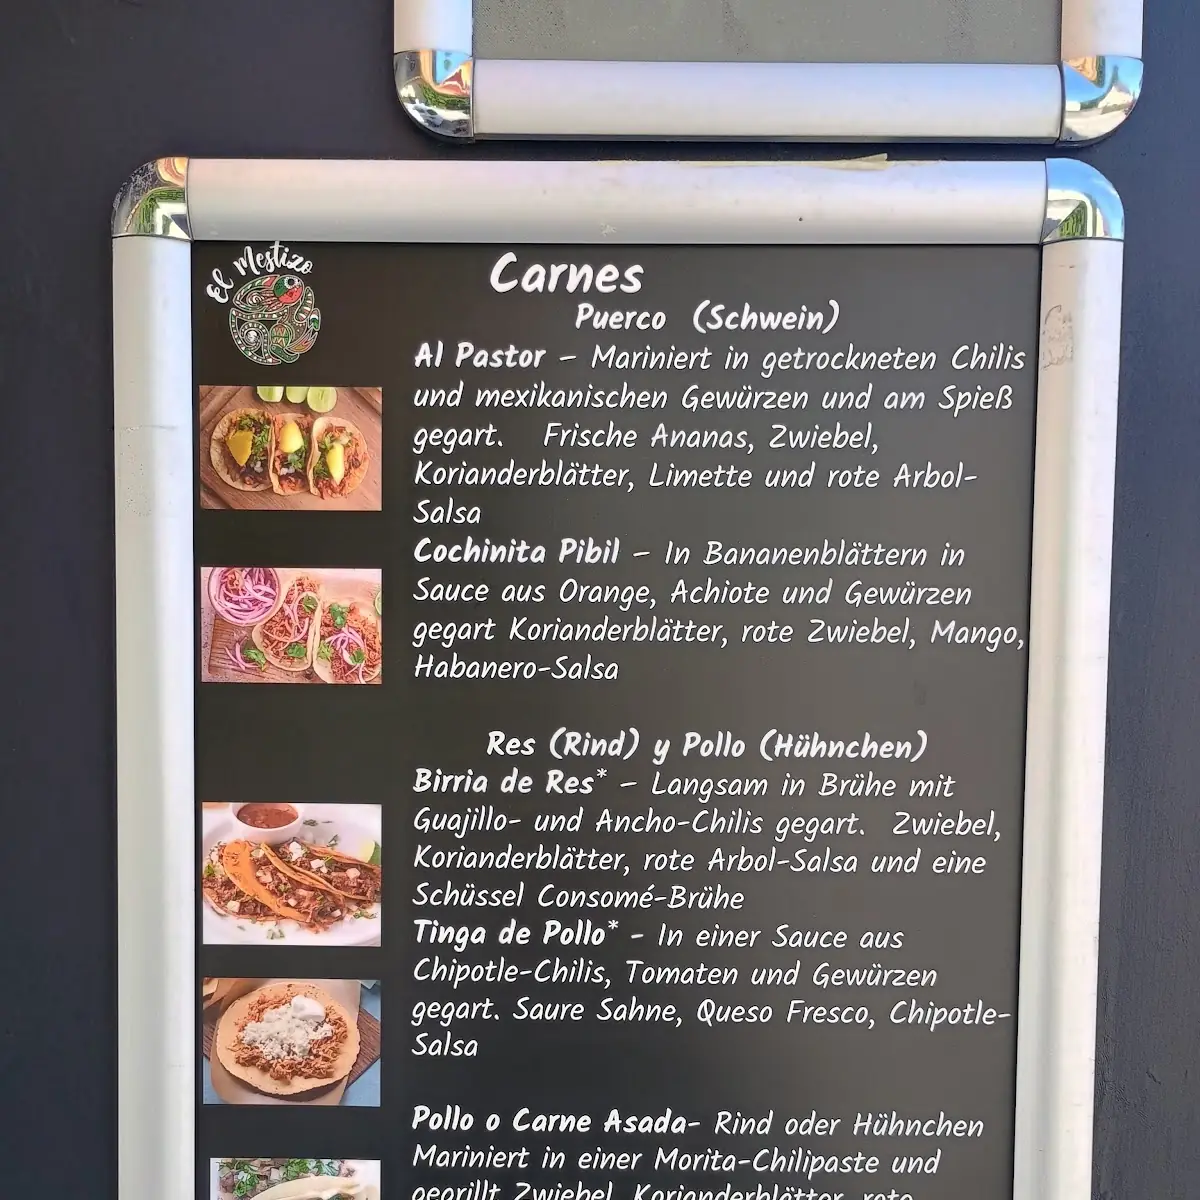 El Mestizo
Carnes
Puerco (Schwein)
Al Pastor – Mariniert in getrockneten Chilis
und mexikanischen Gewürzen und am Spieß
gegart. Frische Ananas, Zwiebel,
Korianderblätter, Limette und rote Arbol-
Salsa
Cochinita Pibil – In Bananenblättern in
Sauce aus Orange, Achiote und Gewürzen
gegart Korianderblätter, rote Zwiebel, Mango,
Habanero-Salsa
Res (Rind) y Pollo (Hühnchen)
Birria de Res* – Langsam in Brühe mit
Guajillo- und Ancho-Chilis gegart. Zwiebel,
Korianderblätter, rote Arbol-Salsa und eine
Schüssel Consomé-Brühe
Tinga de Pollo* - In einer Sauce aus
Chipotle-Chilis, Tomaten und Gewürzen
gegart. Saure Sahne, Queso Fresco, Chipotle-
Salsa
Pollo o Carne Asada- Rind oder Hühnchen
Mariniert in einer Morita-Chilipaste und
gegrillt Zwiebel, Korianderblätter, rote